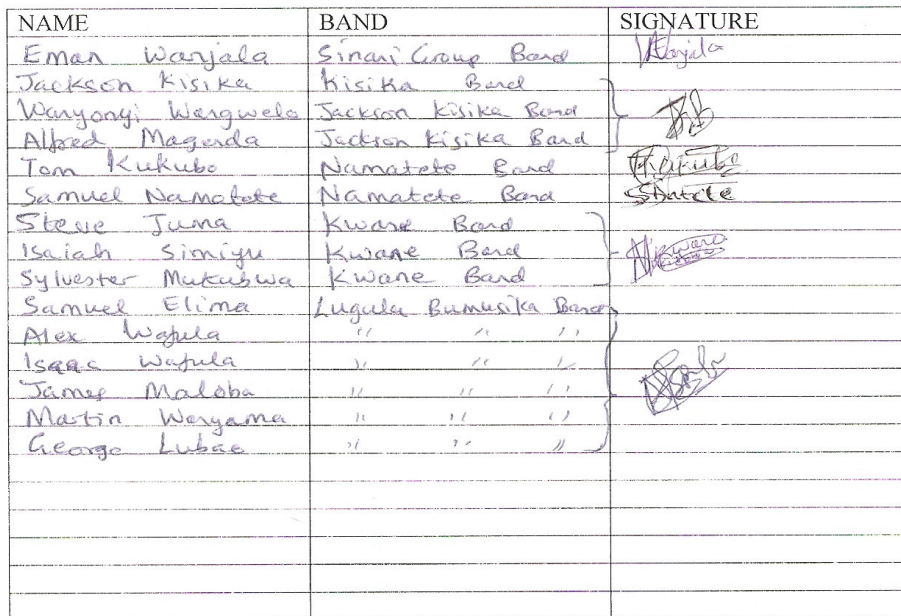 NAME BAND SIGNATURE
Eman Wanjala Sinani Group Band Wanjala
Jackson Kisika Kisika Band
Wanyonyi Wangwelo Jackson Kisika Band
Alfred Magenda Jackson Kisika Band
Tom Kukubo Namatete Band
Samuel Namatete Namatete Band
Steve Juma Kwane Band
Isaiah Simiyu Kwane Band
Sylvester Mukubwa Kwane Band
Samuel Elima Lugula Bumusika Band
Alex Wafula " " "
Isaac Wafula " " "
James Maloba " " "
Martin Wanyama " " "
George Lubao " " "